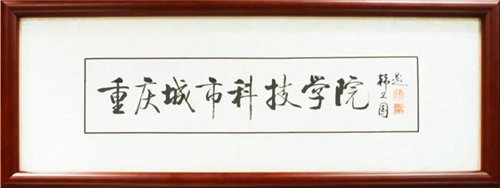 重庆城市科技学院
韩卫国